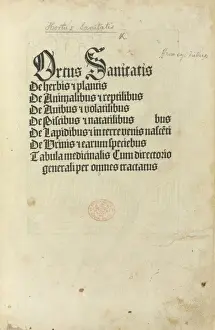 Hortus Sanitatis
Ortus Sanitatis
De herbis ⁊ plantis
De Animalibus ⁊ reptilibus
De Auibus ⁊ volatilibus
De Piscibus ⁊ natatilibus bus
De Lapidibus ⁊ in terre venis nascēti
De Urinis ⁊ earum speciebus
Tabula medicinalis Cum directorio
generali per omnes tractatus